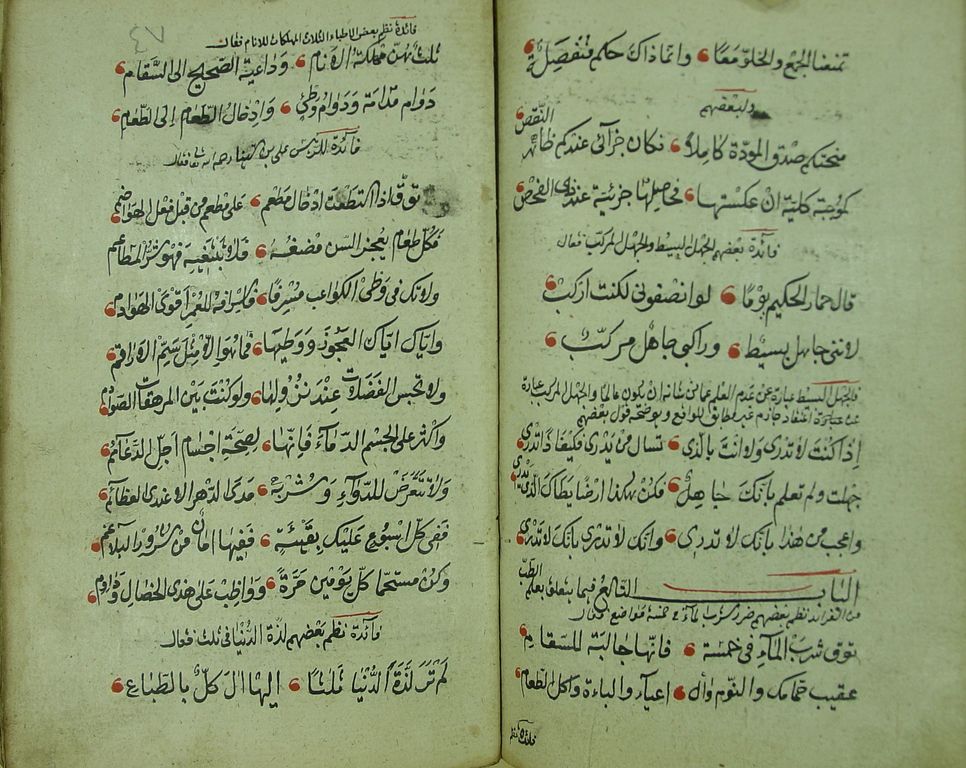 تمنعنا الجمع والخلو معًا وانما ذاك حكم منفصلة
ولبعضهم
منحتكم صدق المودة كاملا فكان جزائى عندكم ظاهر النقص
كموجبة كلية ان عكستها فحاصلها جزئية عند ذى الفحص
فائدة بعضهم الجهل البسيط والجهل المركب فقال
قال حمار الحكيم يوما لو انصفونى لكنت اركب
لاننى جاهل بسيط وراكبى جاهل مركب
فالجهل البسيط عبارة عن عدم العلم عما من شانه ان يكون عالما والجهل المركب عبارة
عن اعتقاد جازم غير مطابق للواقع ويوضحه قول بعضهم
اذا كنت لا تدرى ولا انت بالذى تسال من يدرى فكيف اذا تدرى
جهلت ولم تعلم بانك جاهل فكن هكذا ارضا يطاك الذى يدرى
واعجب من هذا بانك لا تدرى وانك لا تدرى بانك لا تدرى
الباب التاسع فيما يتعلق بعلم الطب
من الفوائد نظم بعضهم ضرر شرب الماء فى خمسة مواضع فقال
توق شرب الماء فى خمسة فانها جالبة للسقام
عقيب حمامك والنوم وال اعياء والباءة واكل الطعام
فائدة نظم
فائدة نظم بعض الاطباء الثلاث المهلكات للانام فقال
ثلث هن مهلكة الانام وداعية الصحيح الى السقام
دوام مدامة ودوام وطئ وادخال الطعام الى الطعام
فائدة للرئيس على بن سينا رحمه الله تعالى فقال
توق اذا استطعت ادخال مطعم على مطعم من قبل فعل الهواضم
فكل طعام يعجز السن مضغه فلا تبتغيه فهو شر المطاعم
ولا تك فى وطئ الكواعب مسرفا فاسرافه للعمر اقوى الهوادم
واياك اياك العجوز ووطيها فما هو الا مثل سم الاراقم
ولا تحبس الفضلات عند نزولها ولو كنت بين المرهفات الصوارم
واكثر على الجسم الدماء فانها لصحة اجسام اجل الدعائم
ولا تتعرض للدواء وشربه مدى الدهر الا عند احدى العظائم
ففى كل اسبوع عليك بقيئة ففيها امان من شرور البلاغم
وكن مستحما كل يومين مرة وواظب على هذى الخصال وداوم
فائدة نظم بعضهم لذة الدنيا فى ثلث فقال
لم تر لذة الدنيا ثلاثا اليها ال كل بالطباع